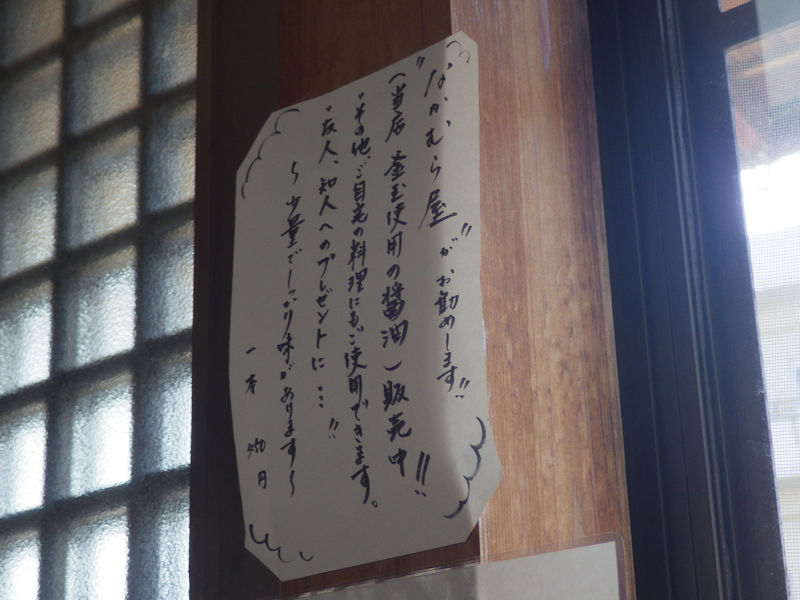 "なかむら屋"がお勧めします!!
(当店 釜玉使用の醤油)販売中!!
・その他、ご自宅の料理にもご使用できます。
・友人、知人へのプレゼントに…!!
〜少量でしっかり味があります〜
一本 450円